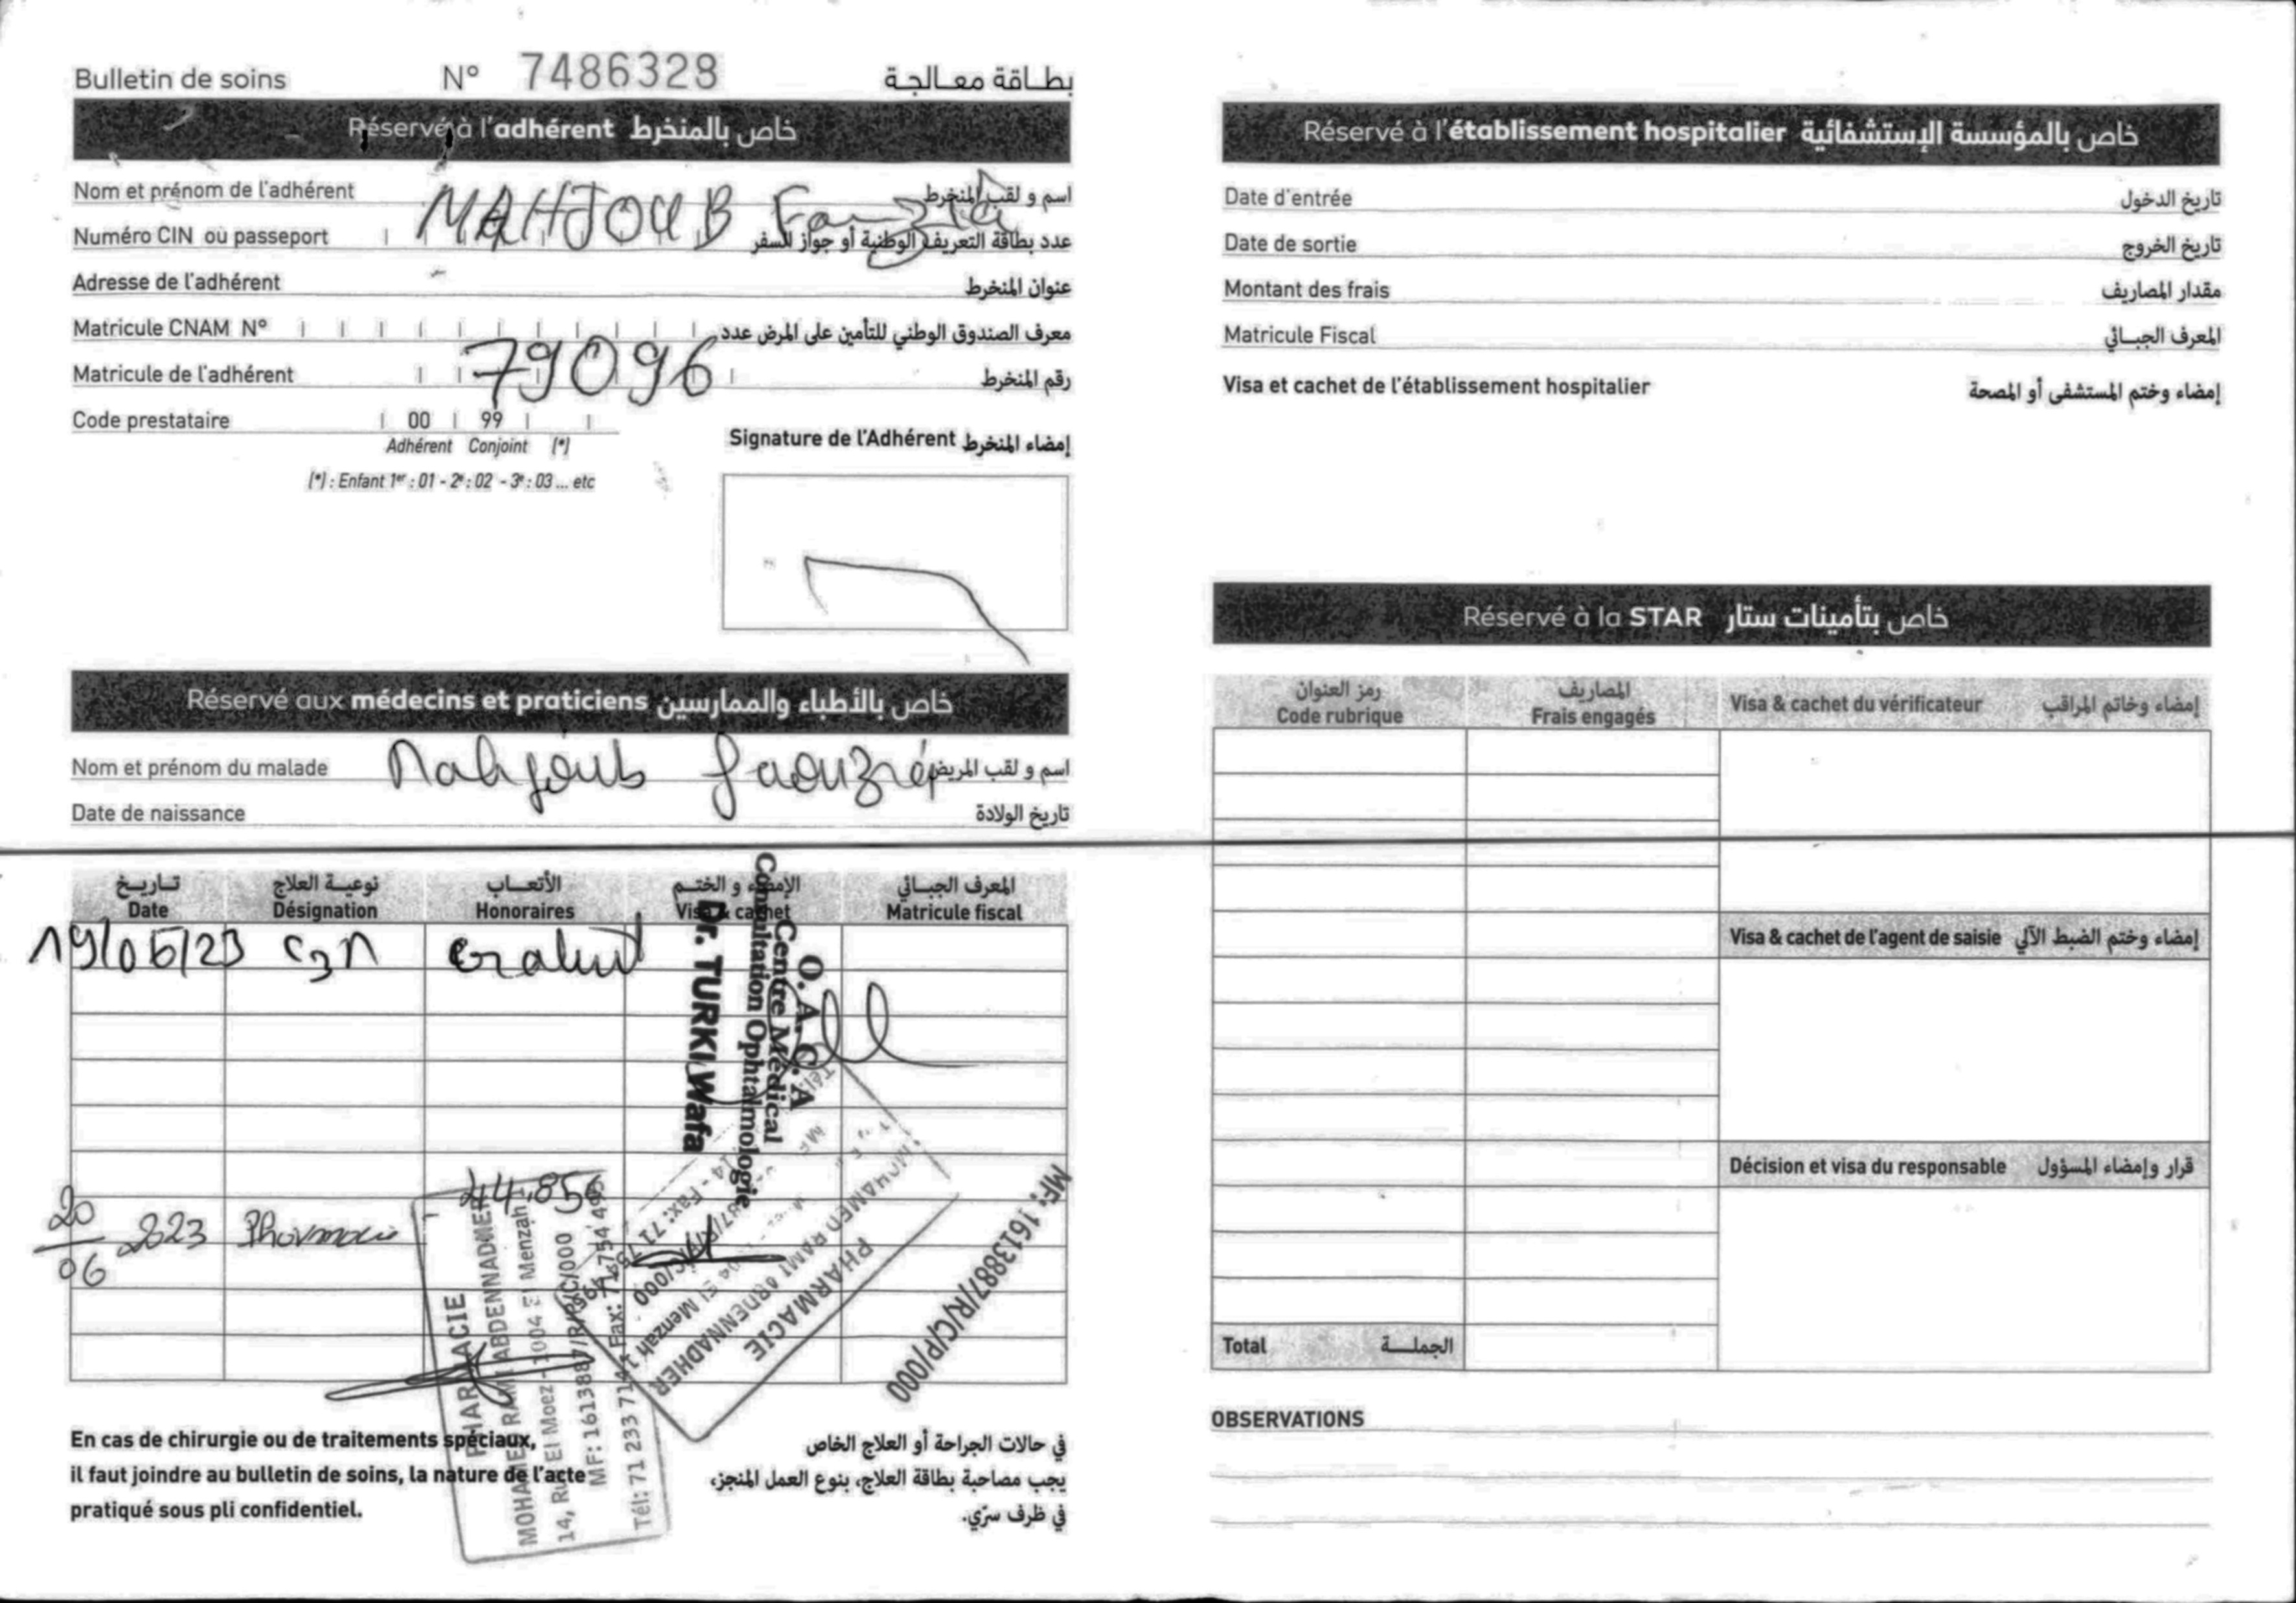 Bulletin de soins N° 7486328 بطاقة معالجة
Réservé à l'adhérent خاص بالمنخرط
Nom et prénom de l'adhérent MAHJOUB Fauzia اسم و لقب المنخرط
Numéro CIN ou passeport عدد بطاقة التعريف الوطنية أو جواز السفر
Adresse de l'adhérent عنوان المنخرط
Matricule CNAM N° معرف الصندوق الوطني للتأمين على المرض عدد
Matricule de l'adhérent 79096 رقم المنخرط
Code prestataire 00 99
Adhérent Conjoint (*)
(*) : Enfant 1er : 01 - 2e : 02 - 3e : 03 ... etc
Signature de l'Adhérent إمضاء المنخرط
Réservé aux médecins et praticiens خاص بالأطباء والممارسين
Nom et prénom du malade Mahjoub faouzia اسم و لقب المريض
Date de naissance تاريخ الولادة
تاريخ نوعية العلاج الأتعاب الإمضاء و الختم المعرف الجبائي
Date Désignation Honoraires Visa & cachet Matricule fiscal
19/06/23 Gratuit
O.A.C.A
Centre Médical
Consultation Ophtalmologie
Dr. TURKI Wafa
20/06 2023 Pharmacie 44,856
PHARMACIE
MOHAMED RAMI ABDENNADHER
14, Rue El Moez - 1004 El Menzah 1
MF: 1613887/R/P/C/000
Tél: 71 233 714 - Fax: 71 754 495
PHARMACIE
MOHAMED RAMI ABDENNADHER
1004 El Menzah 1
Fax: 71 754 495
MF: 1613887/R/C/P/000
En cas de chirurgie ou de traitements spéciaux,
il faut joindre au bulletin de soins, la nature de l'acte
pratiqué sous pli confidentiel.
في حالات الجراحة أو العلاج الخاص
يجب مصاحبة بطاقة العلاج، بنوع العمل المنجز،
في ظرف سرّي.
Réservé à l'établissement hospitalier خاص بالمؤسسة الإستشفائية
Date d'entrée تاريخ الدخول
Date de sortie تاريخ الخروج
Montant des frais مقدار المصاريف
Matricule Fiscal المعرف الجبائي
Visa et cachet de l'établissement hospitalier إمضاء وختم المستشفى أو المصحة
Réservé à la STAR خاص بتأمينات ستار
رمز العنوان المصاريف
Code rubrique Frais engagés Visa & cachet du vérificateur إمضاء وخاتم المراقب
Visa & cachet de l'agent de saisie إمضاء وختم الضبط الآلي
Décision et visa du responsable قرار وإمضاء المسؤول
Total الجملة
OBSERVATIONS